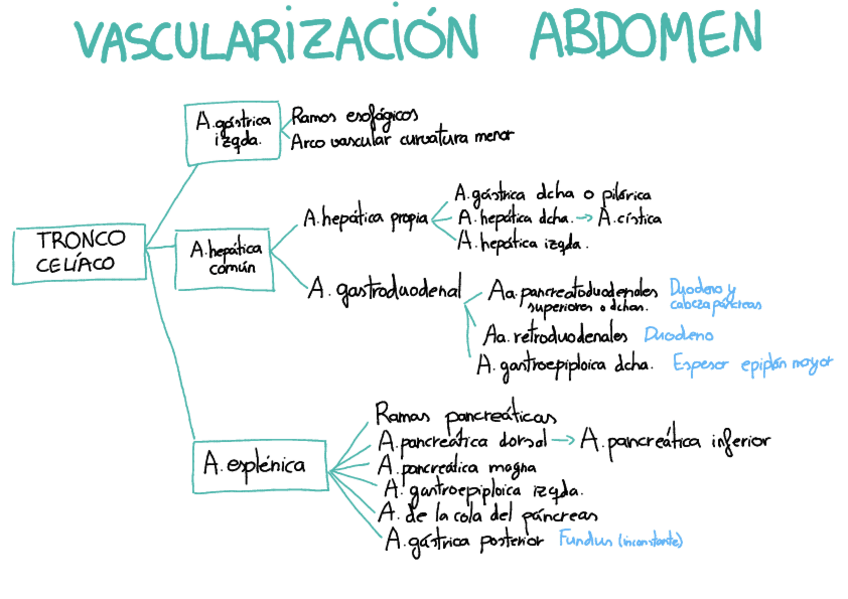 VASCULARIZACIÓN ABDOMEN
A. gástrica
izqda.
Ramos esofágicos
Arco vascular curvatura menor
TRONCO
CELÍACO
A. hepática
común
A. hepática propia
A. gástrica dcha o pilórica
A. hepática dcha. → A. cística
A. hepática izqda.
A. gastroduodenal
Aa. pancreatoduodenales
superiores o dchas.
Duodeno y
cabeza páncreas
Aa. retroduodenales Duodeno
A. gastroepiploica dcha. Espesor epiplón mayor
A. esplénica
Ramas pancreáticas
A. pancreática dorsal → A. pancreática inferior
A. pancreática magna
A. gastroepiploica izqda.
A. de la cola del páncreas
A. gástrica posterior Fundus (inconstante)